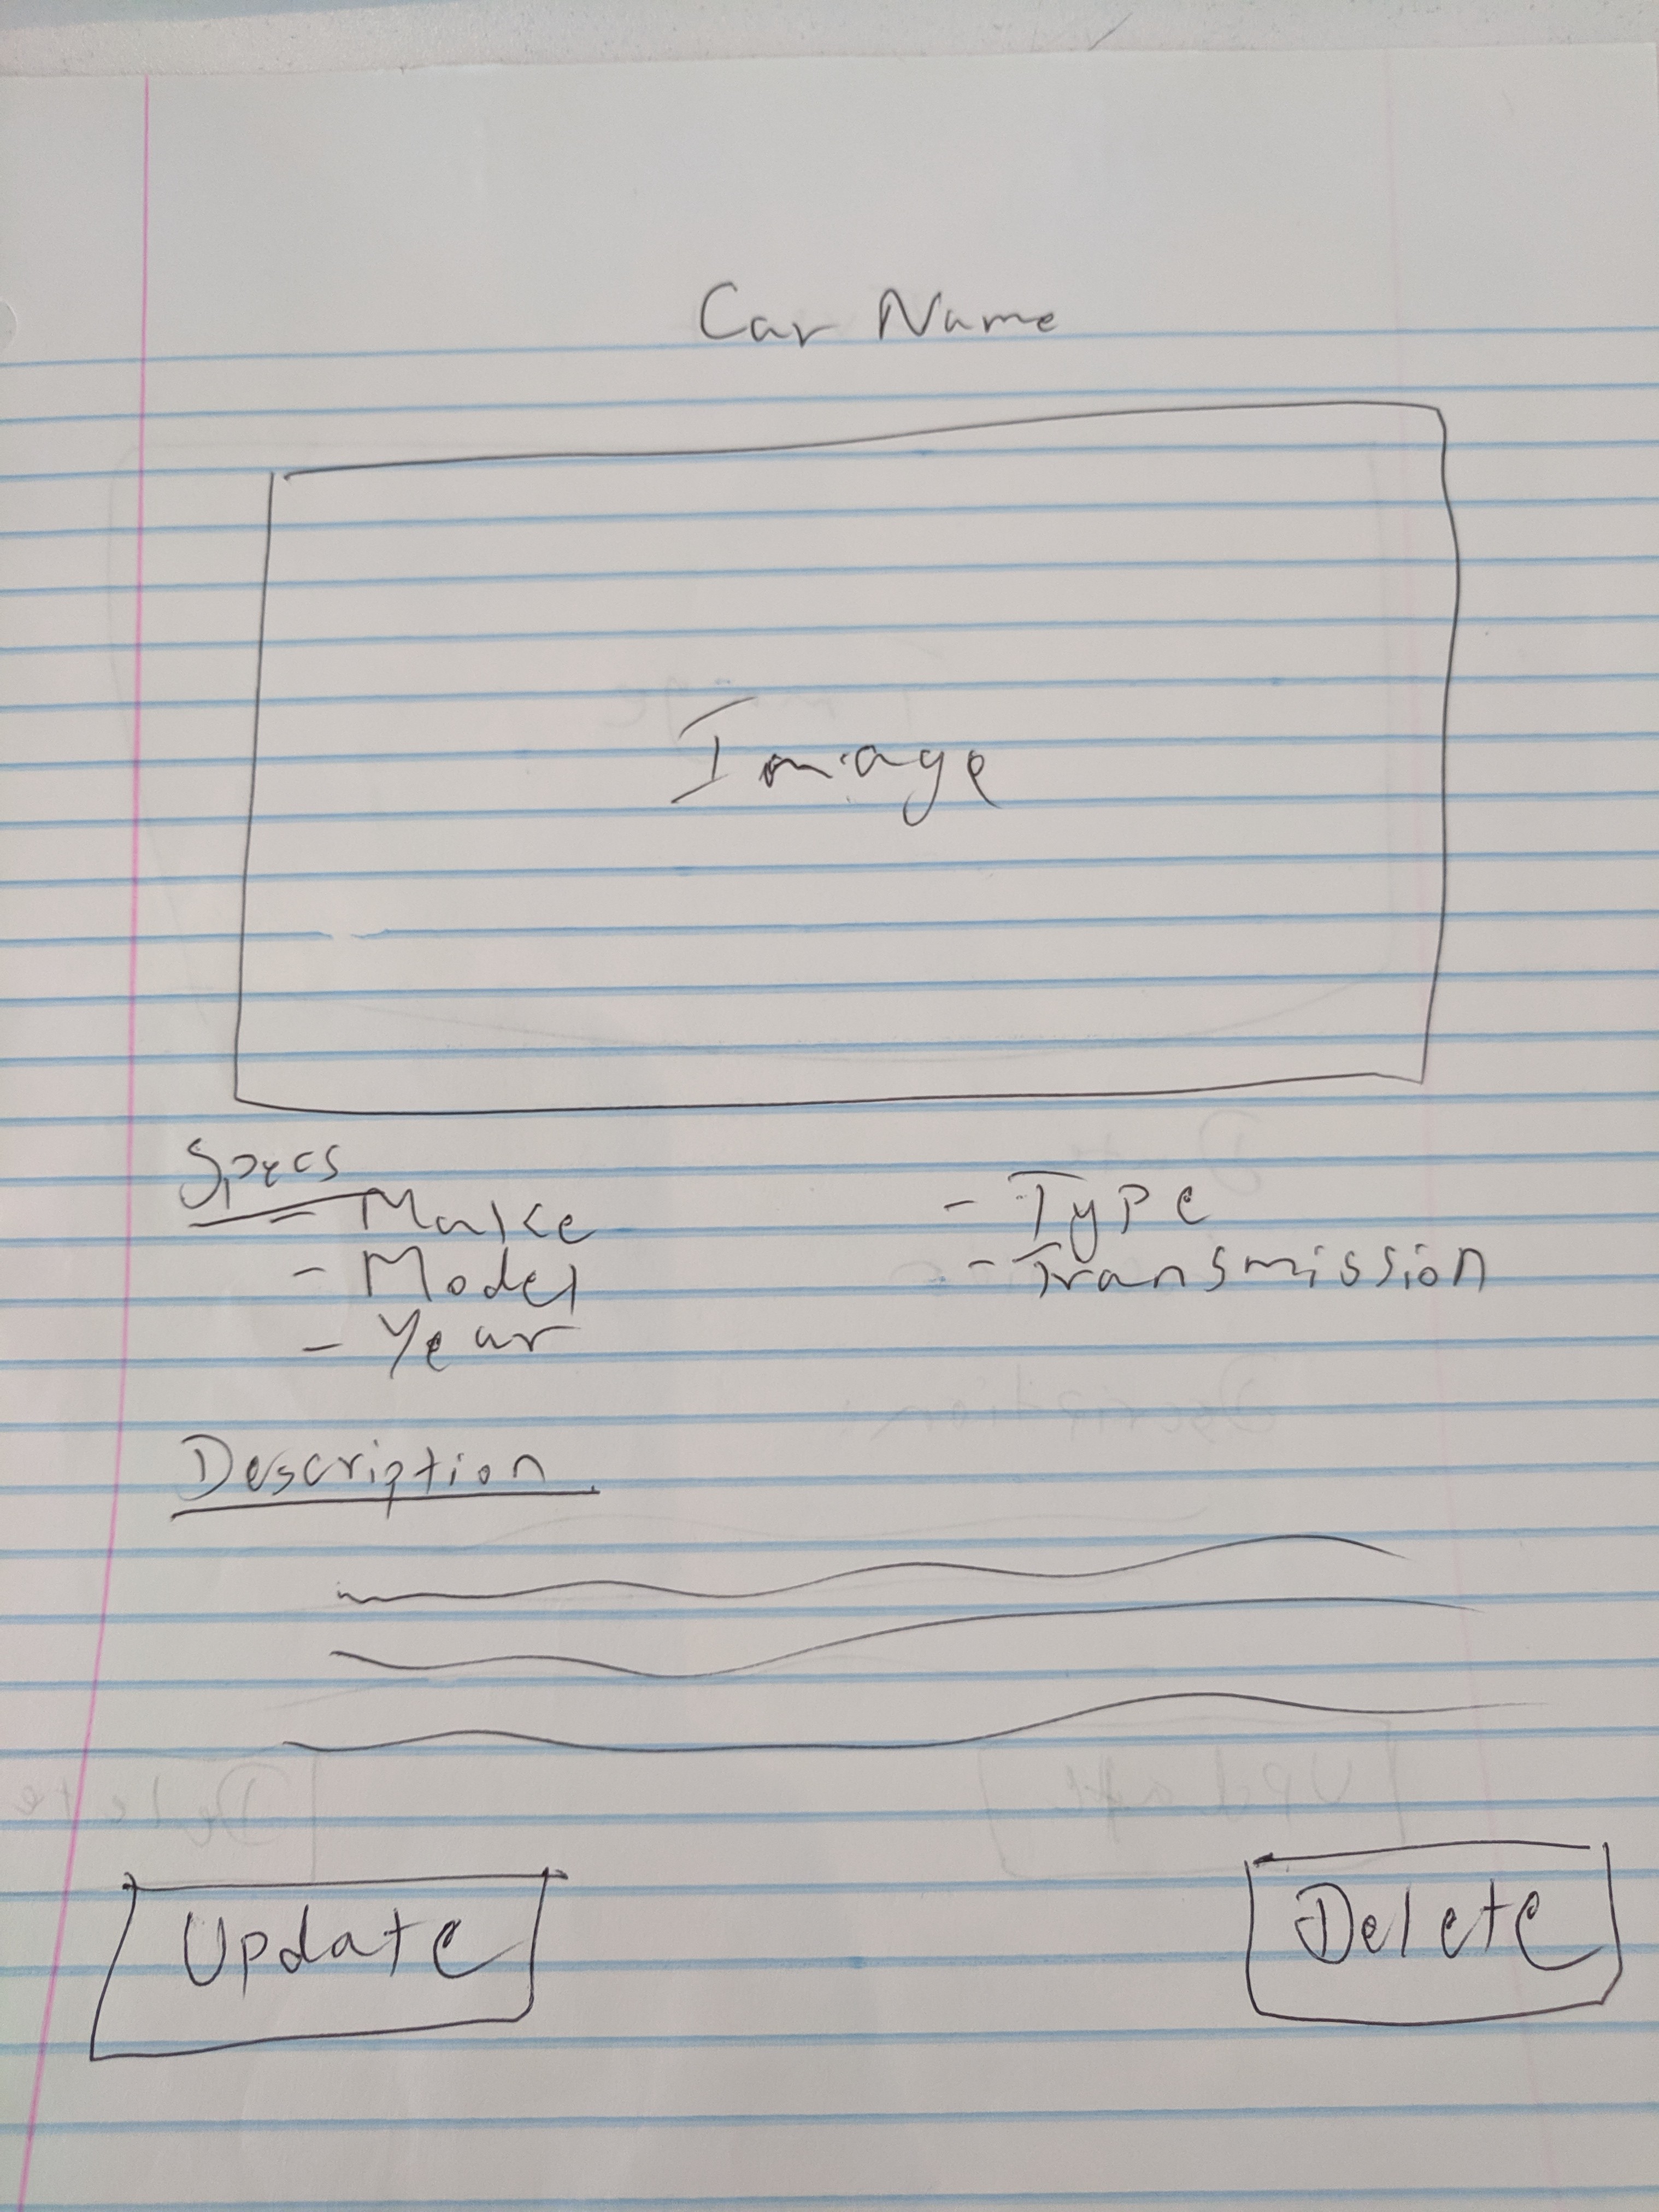 Car Name
Image
Specs
- Make
- Model
- Year
- Type
- Transmission
Description
Update
Delete